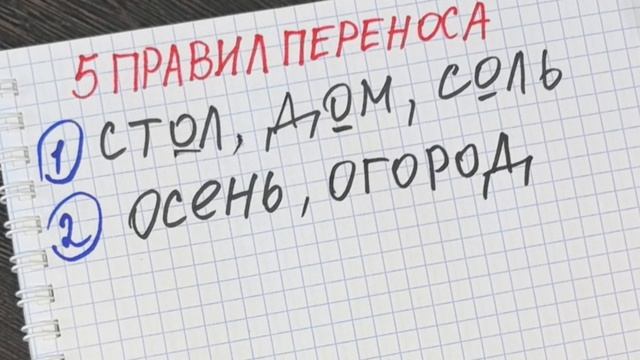 5 ПРАВИЛ ПЕРЕНОСА
1 СТОЛ, ДОМ, СОЛЬ
2 ОСЕНЬ, ОГОРОД